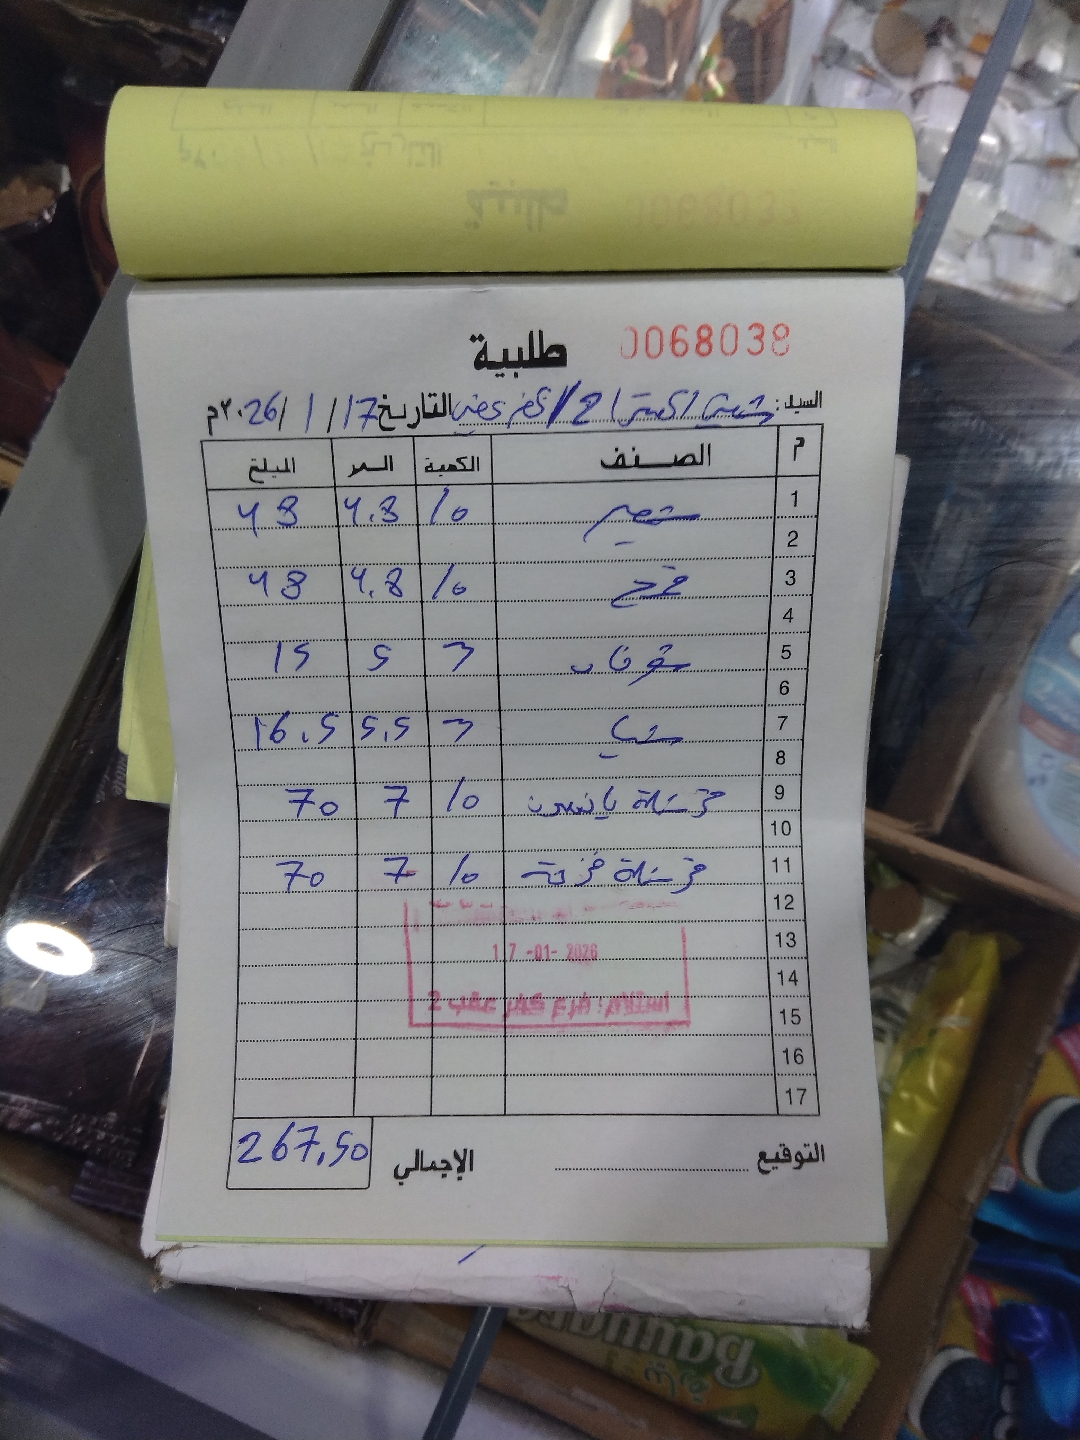 طلبية 0068038
السيد: 2 / كفر عقب التاريخ 17 / 1 / 2026م
م الصنف الكمية السعر المبلغ
1 شعير 10 4.8 48
2
3 قمح 10 4.8 48
4
5 شوفان 3 5 15
6
7 3 5.5 16.5
8
9 قرشلة يانسون 10 7 70
10
11 قرشلة قزحة 10 7 70
12
13
14
15
16
17
17 -01- 2026
استلام: فرع كفر عقب 2
التوقيع الإجمالي 267.50
Bauducco